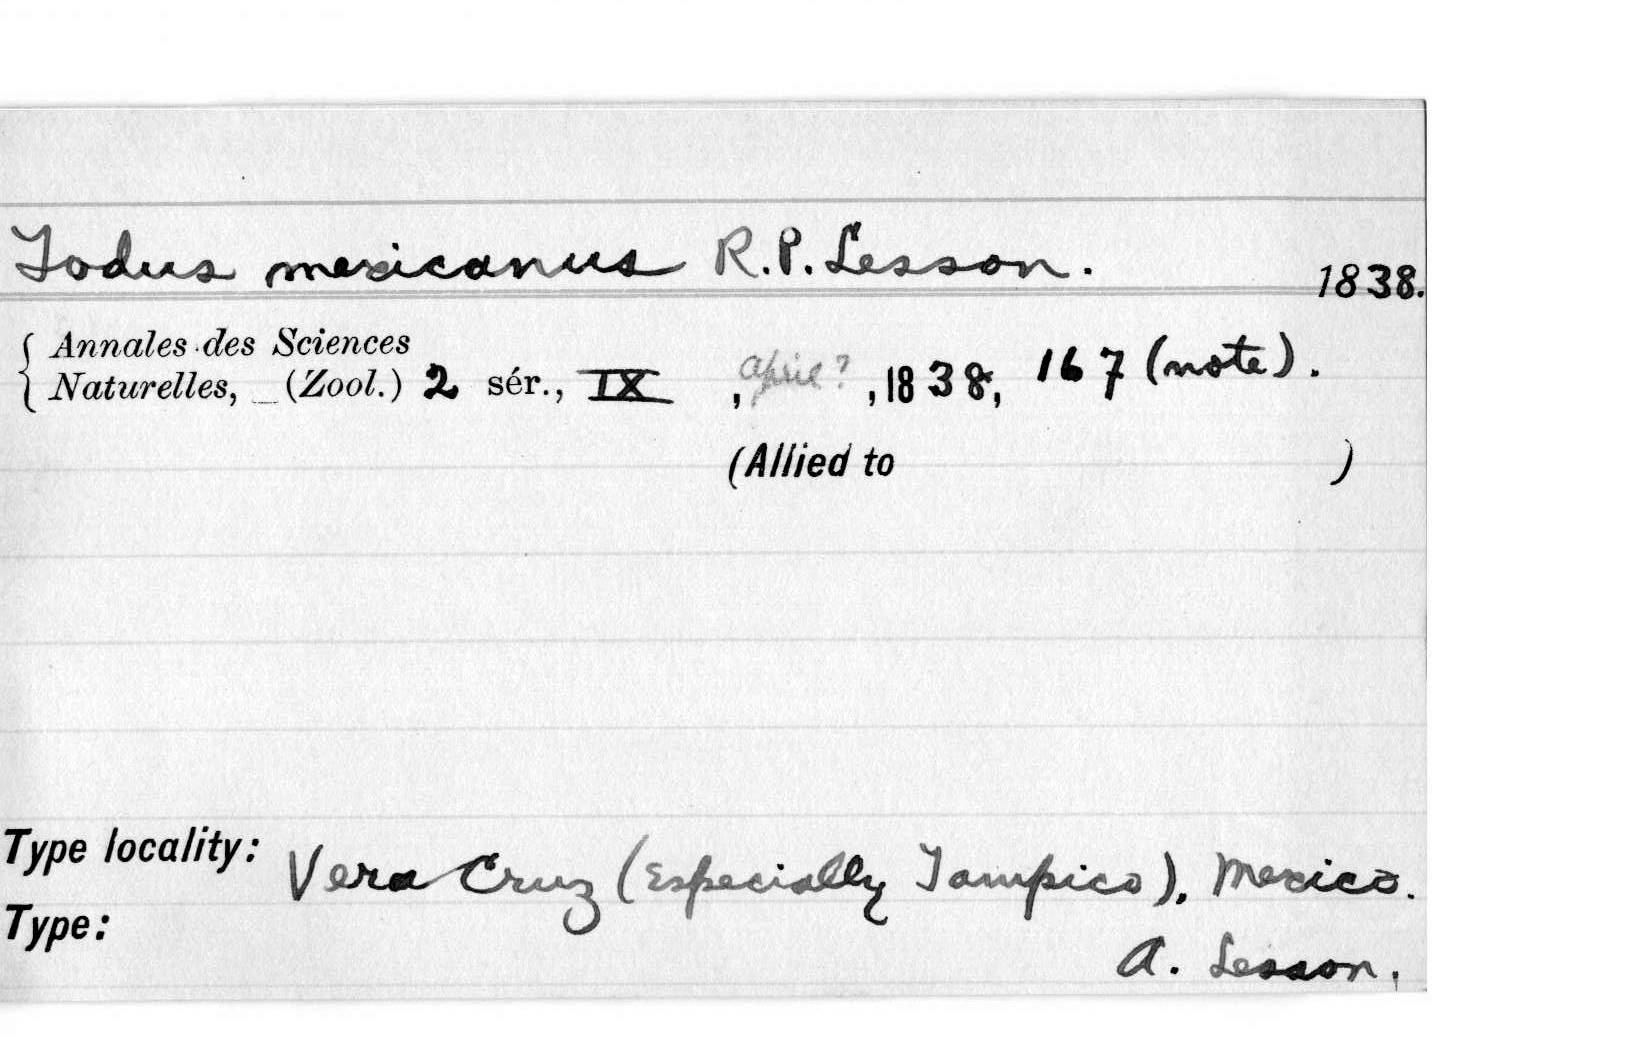 Todus mexicanus R.P. Lesson.
1838.
Annales des Sciences
Naturelles, _ (Zool.) 2 sér., IX , April? , 1838, 167 (note).
(Allied to )
Type locality: Vera Cruz (Especially Tampico), Mexico.
Type:
A. Lesson.